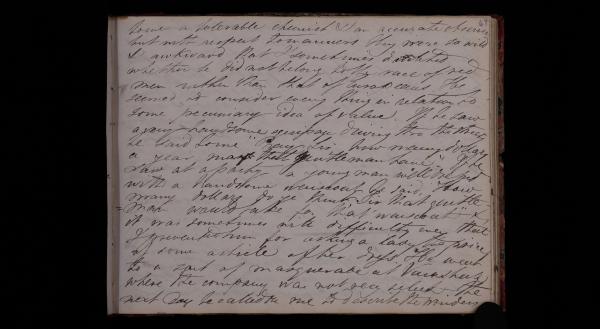 some a tolerable chemist & an accurate observer 64
but with respect to manners they were so wild
& awkward that I sometimes doubted
whether he did not belong to the race of red
men rather than that of
seemed to consider every thing in relation to
some pecuniary idea of value. If he saw
a gay handsome equipage driving thro the street
he said some "Pray Sir, how many dollars
a year may that gentleman have". If he
saw at a party a young man well dressed
with a handsome waistcoat he said "how
many dollars do ye think Sir that gentle
man would take for that waistcoat" &
it was sometimes with difficulty even that
I prevented him for asking a lady the price
of some article of her dress. He went
to a sort of masquerade at
where the company was not very select. The
next day he called on me to describe the wonders